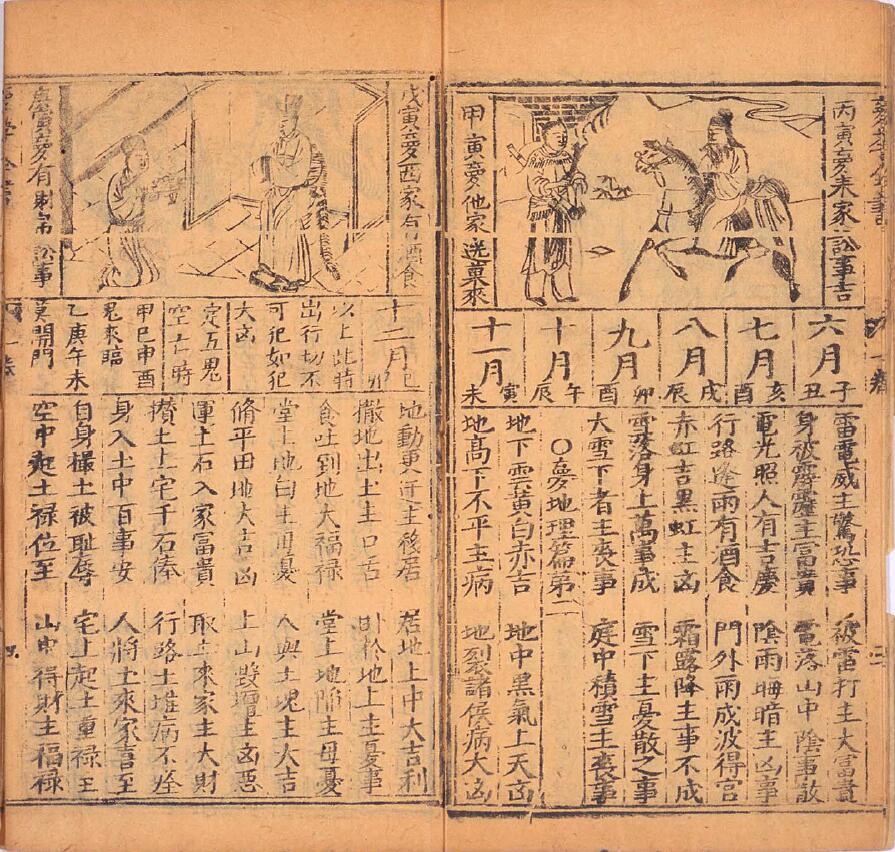 丙寅夢未家訟事吉
甲寅夢他家送菓來
六月 子丑
七月 亥酉
八月 戌辰
九月 卯酉
十月 午辰
十一月 寅未
雷電威主驚恐事 被雷打主大富貴
身被霹靂主富貴 電落山中陰事散
電光照人有吉慶 陰雨晦暗主凶事
行路逢雨有酒食 門外雨成波得官
赤虹吉黑虹主凶 霜露降主事不成
雪落身上萬事成 雪下主憂散之事
大雪下者主喪事 庭中積雪主喪事
〇夢地理篇第二
地下雲黃白赤吉 地中黑氣上天凶
地高下不平主病 地裂諸侯病大凶
戊寅夢西家有酒食
庚寅夢有刺帛訟事
十二月 巳卯
以上此時
出行切不
可犯如犯
大凶
定五鬼
空亡時
甲巳申酉
鬼來臨
乙庚午未
莫開門
地動更遷主移居 居地上中大吉利
撒地出土主口舌 卧於地上主憂事
食吐到地大福祿 堂上地陷主母憂
堂上地自主母憂 人與土塊主大吉
脩平田地大吉凶 上山塟壇主凶惡
運土石入家富貴 取土來家主大財
攢土上宅千石俸 行路土堆病不痊
身入土中百事安 人將土來家喜至
自身撮土被耻辱 宅上起土重祿
空中起土祿位至 山中得財主福祿